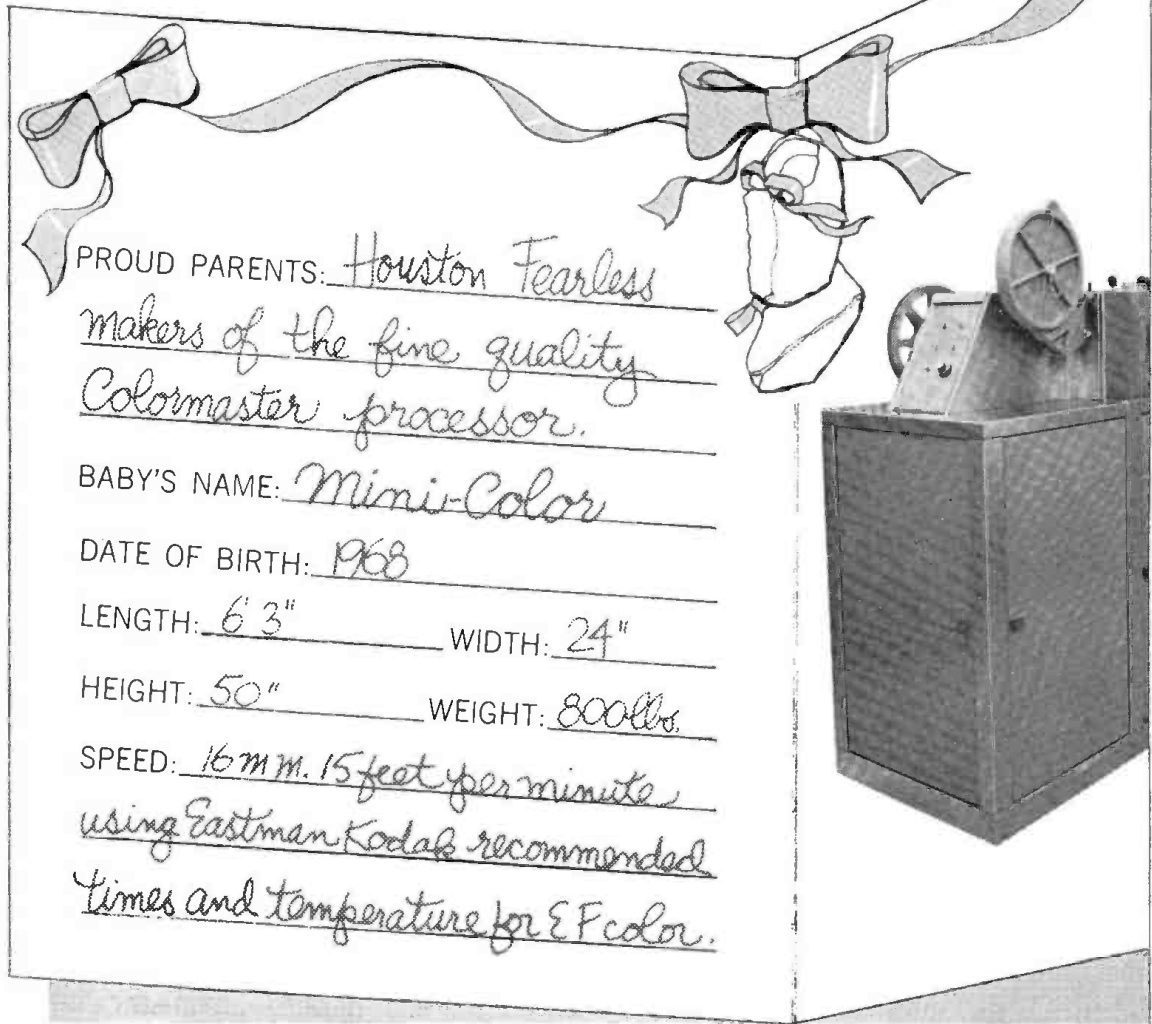 PROUD PARENTS: Houston Fearless
makers of the fine quality
Colormaster processor.
BABY'S NAME: Mini-Color
DATE OF BIRTH: 1968
LENGTH: 6'3" WIDTH: 24"
HEIGHT: 50" WEIGHT: 800lbs.
SPEED: 16mm. 15 feet per minute
using Eastman Kodak recommended
times and temperature for EF color.